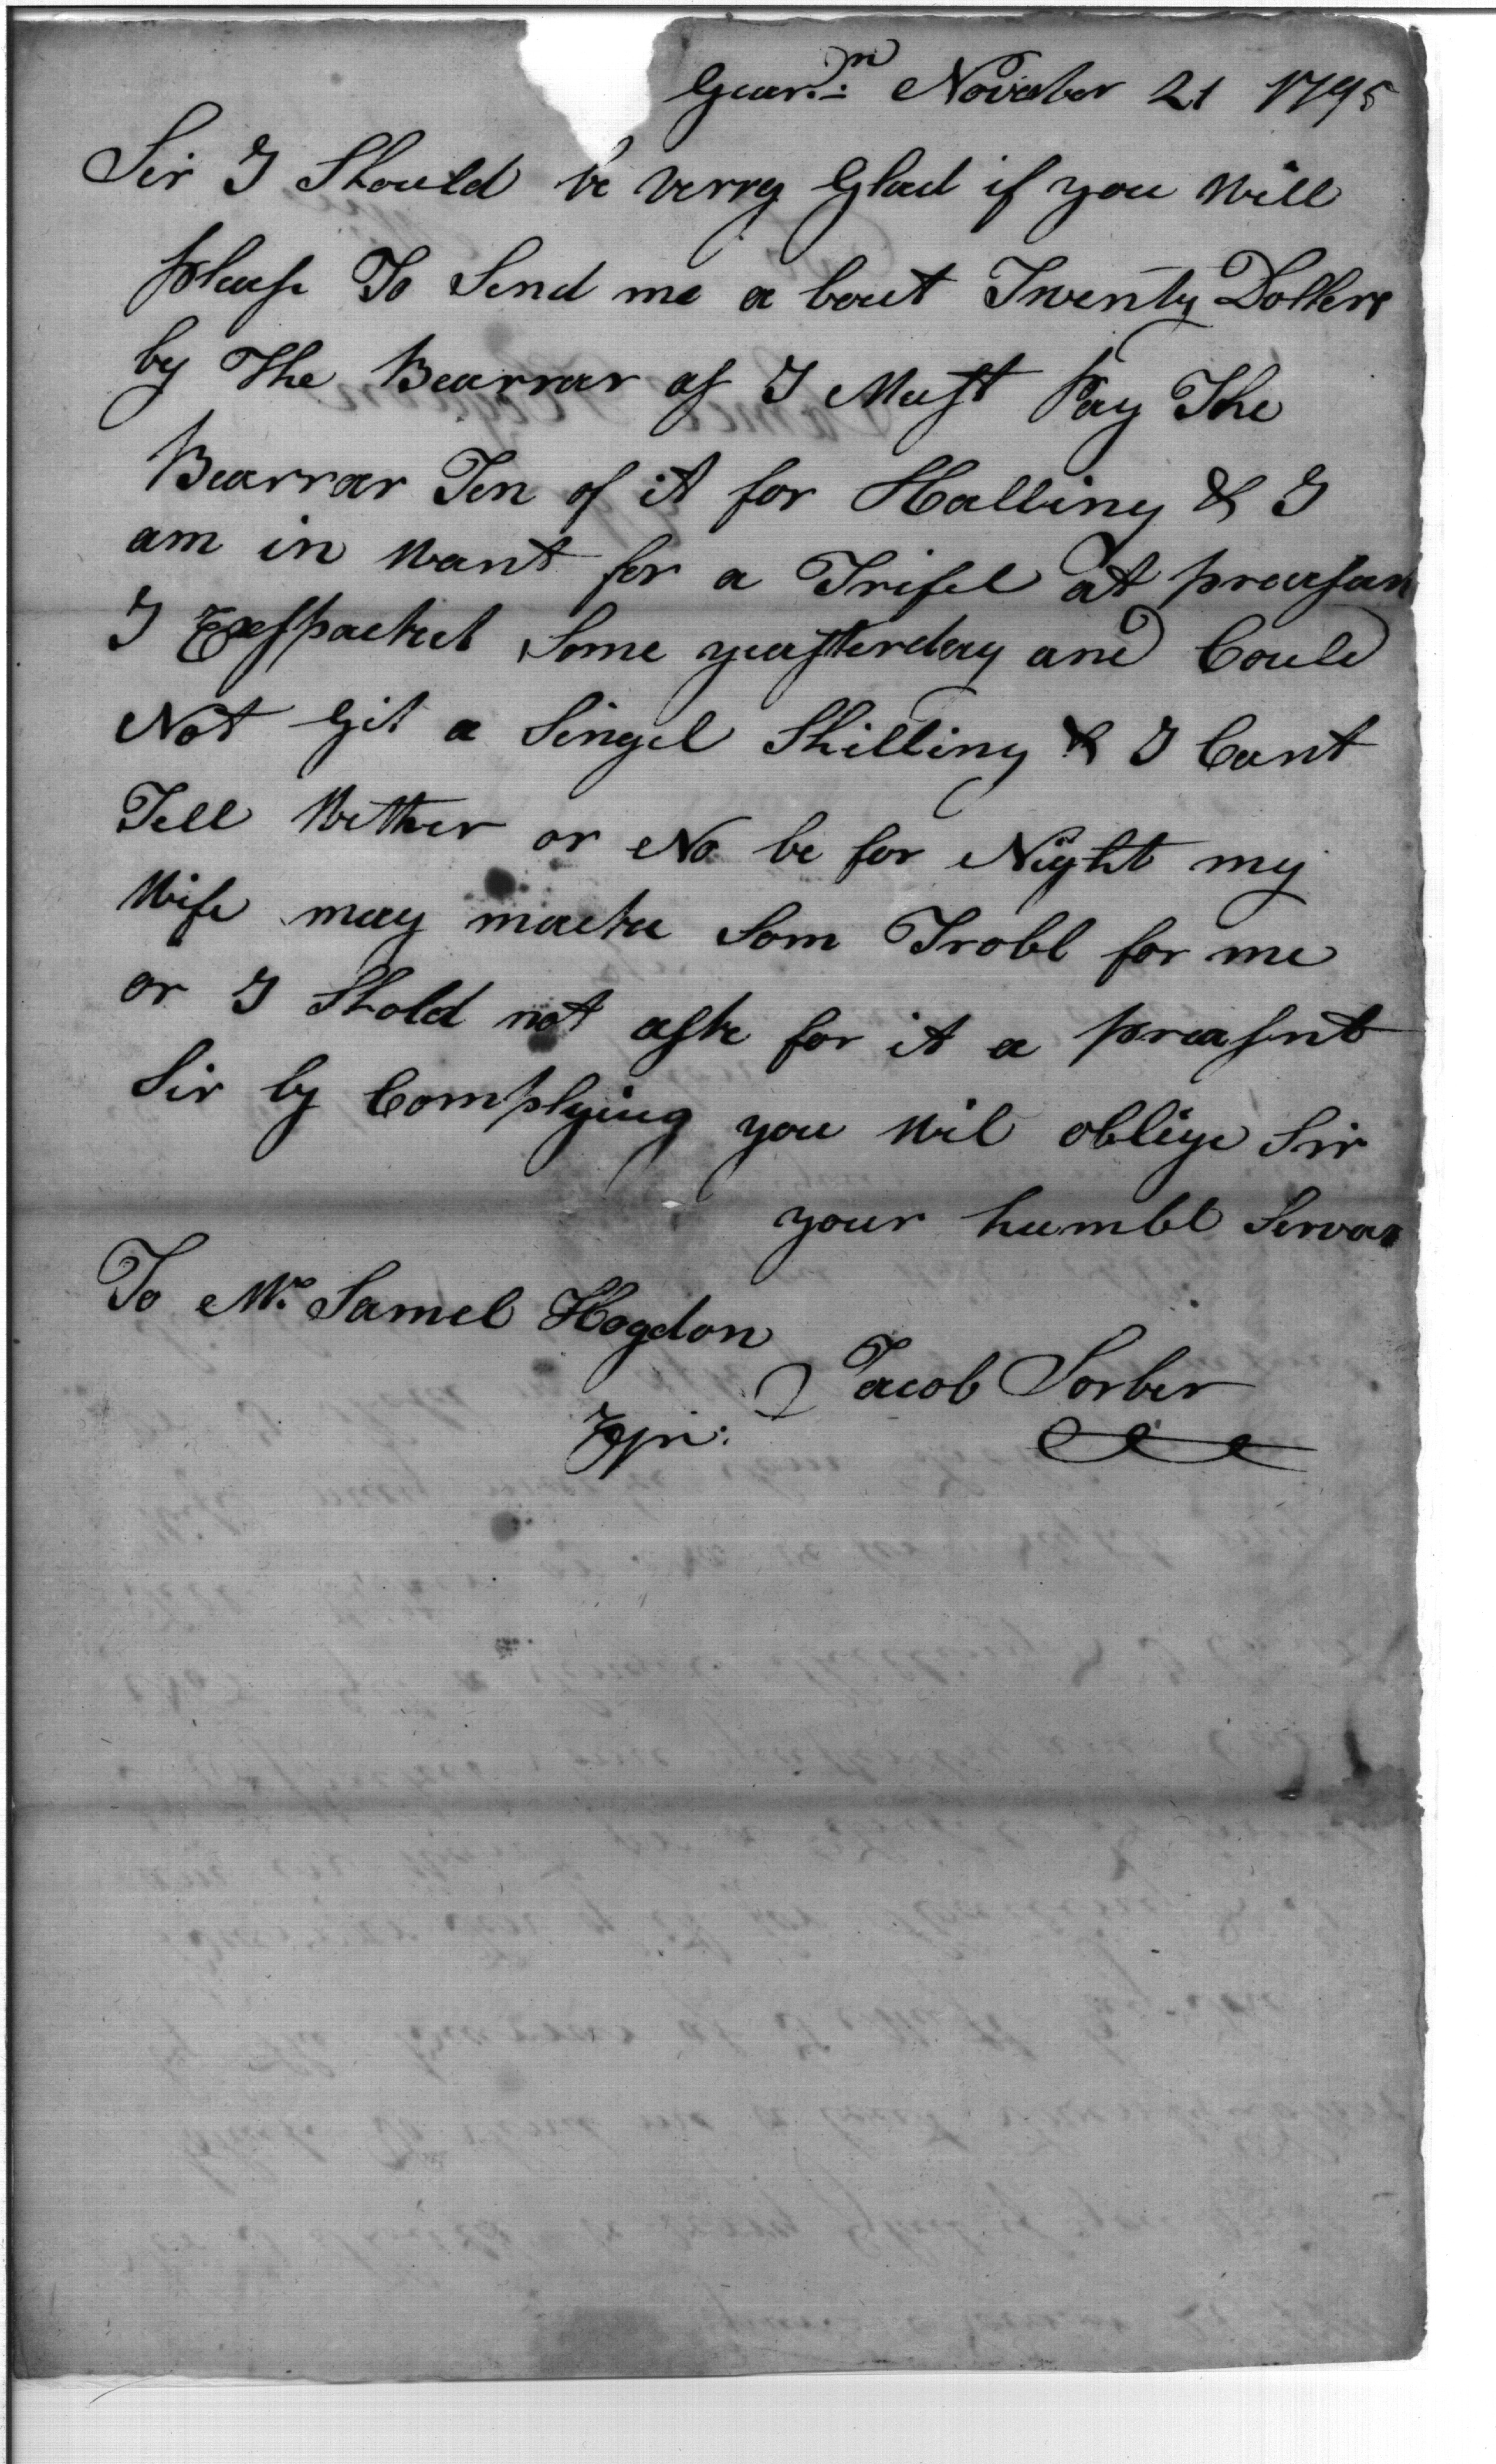 Gear.n November 21 1795
Sir I Should be verry Glad if you Will
please To Send me a bout Twenty Dollers
by The Bearrar as I Must Pay The
Bearrar Ten of it for Halling & I
am in Want for a Trifel at preasan
I Exspacted Some yeasterday and Could
Not Git a Singel Shilling & I Cant
Tell Wether or No be for Night my
Wife may make Som Trobl for me
or I Shold not aske for it a preasnt
Sir by Complying you Wil oblige Sir
your humbl Servan
To Mr. Samel Hogdon
Jacob Sorber